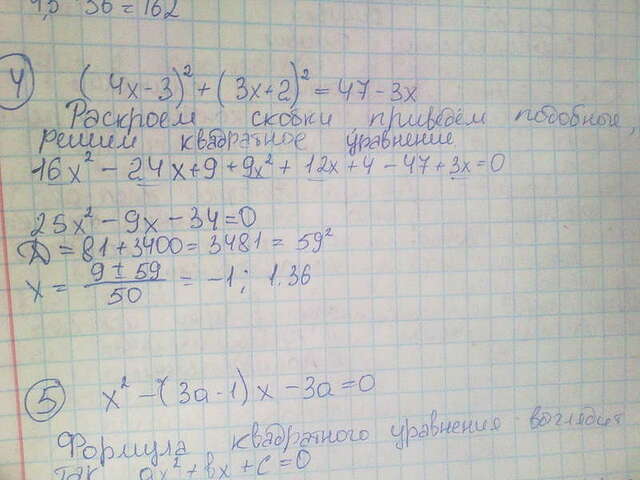 1,5 · 36 = 162
4
(4x-3)² + (3x+2)² = 47 - 3x
Раскроем скобки приведём подобные,
решим квадратное уравнение
16x² - 24x + 9 + 9x² + 12x + 4 - 47 + 3x = 0
25x² - 9x - 34 = 0
D = 81 + 3400 = 3481 = 59²
x = (9 ± 59)/50 = -1; 1.36
5
x² - (3a - 1)x - 3a = 0
Формула квадратного уравнения
так ax² + bx + c = 0